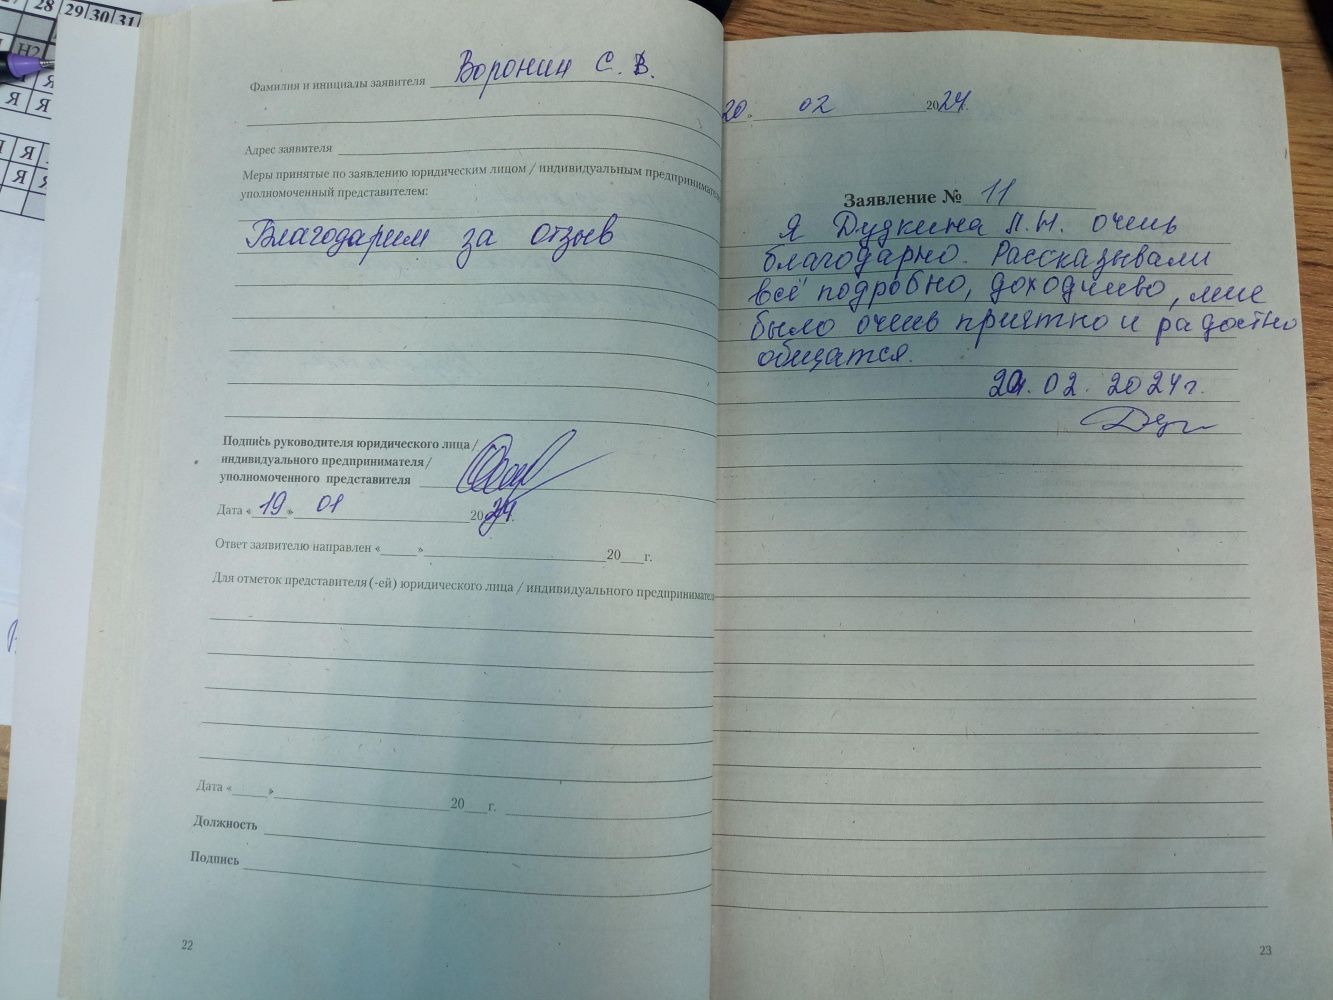 28 29 30 31
Н2
Я
Я Я
Я
Я Я
Фамилия и инициалы заявителя Воронин С. В.
Адрес заявителя
Меры принятые по заявлению юридическим лицом / индивидуальным предпринимателем
уполномоченный представителем:
Благодарим за отзыв
Подпись руководителя юридического лица /
индивидуального предпринимателя /
уполномоченного представителя
Дата « 19 » 01 2024г.
Ответ заявителю направлен « » 20 г.
Для отметок представителя (-ей) юридического лица / индивидуального предпринимател
Дата « » 20 г.
Должность
Подпись
22
20. 02 2024г.
Заявление № 11
Я Дудкина Л.Н. очень
благодарно. Рассказывали
всё подробно, доходчиво, мне
было очень приятно и радостно
общатся.
20.02.2024г.
23